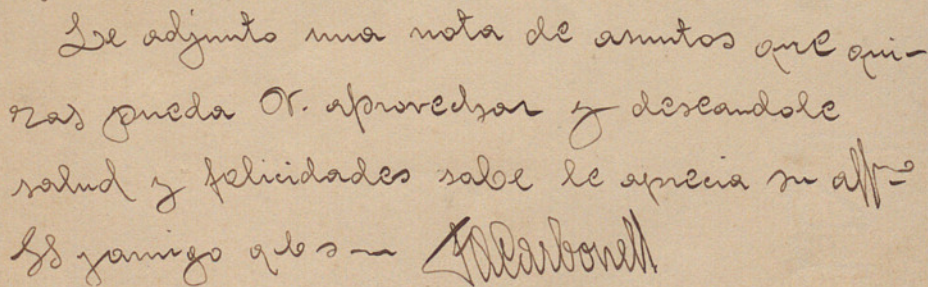 Le adjunto una nota de asuntos que qui-
zas pueda V. aprovechar y deseandole
salud y felicidades sabe le aprecia su affmo
SS y amigo q b s m JACarbonell